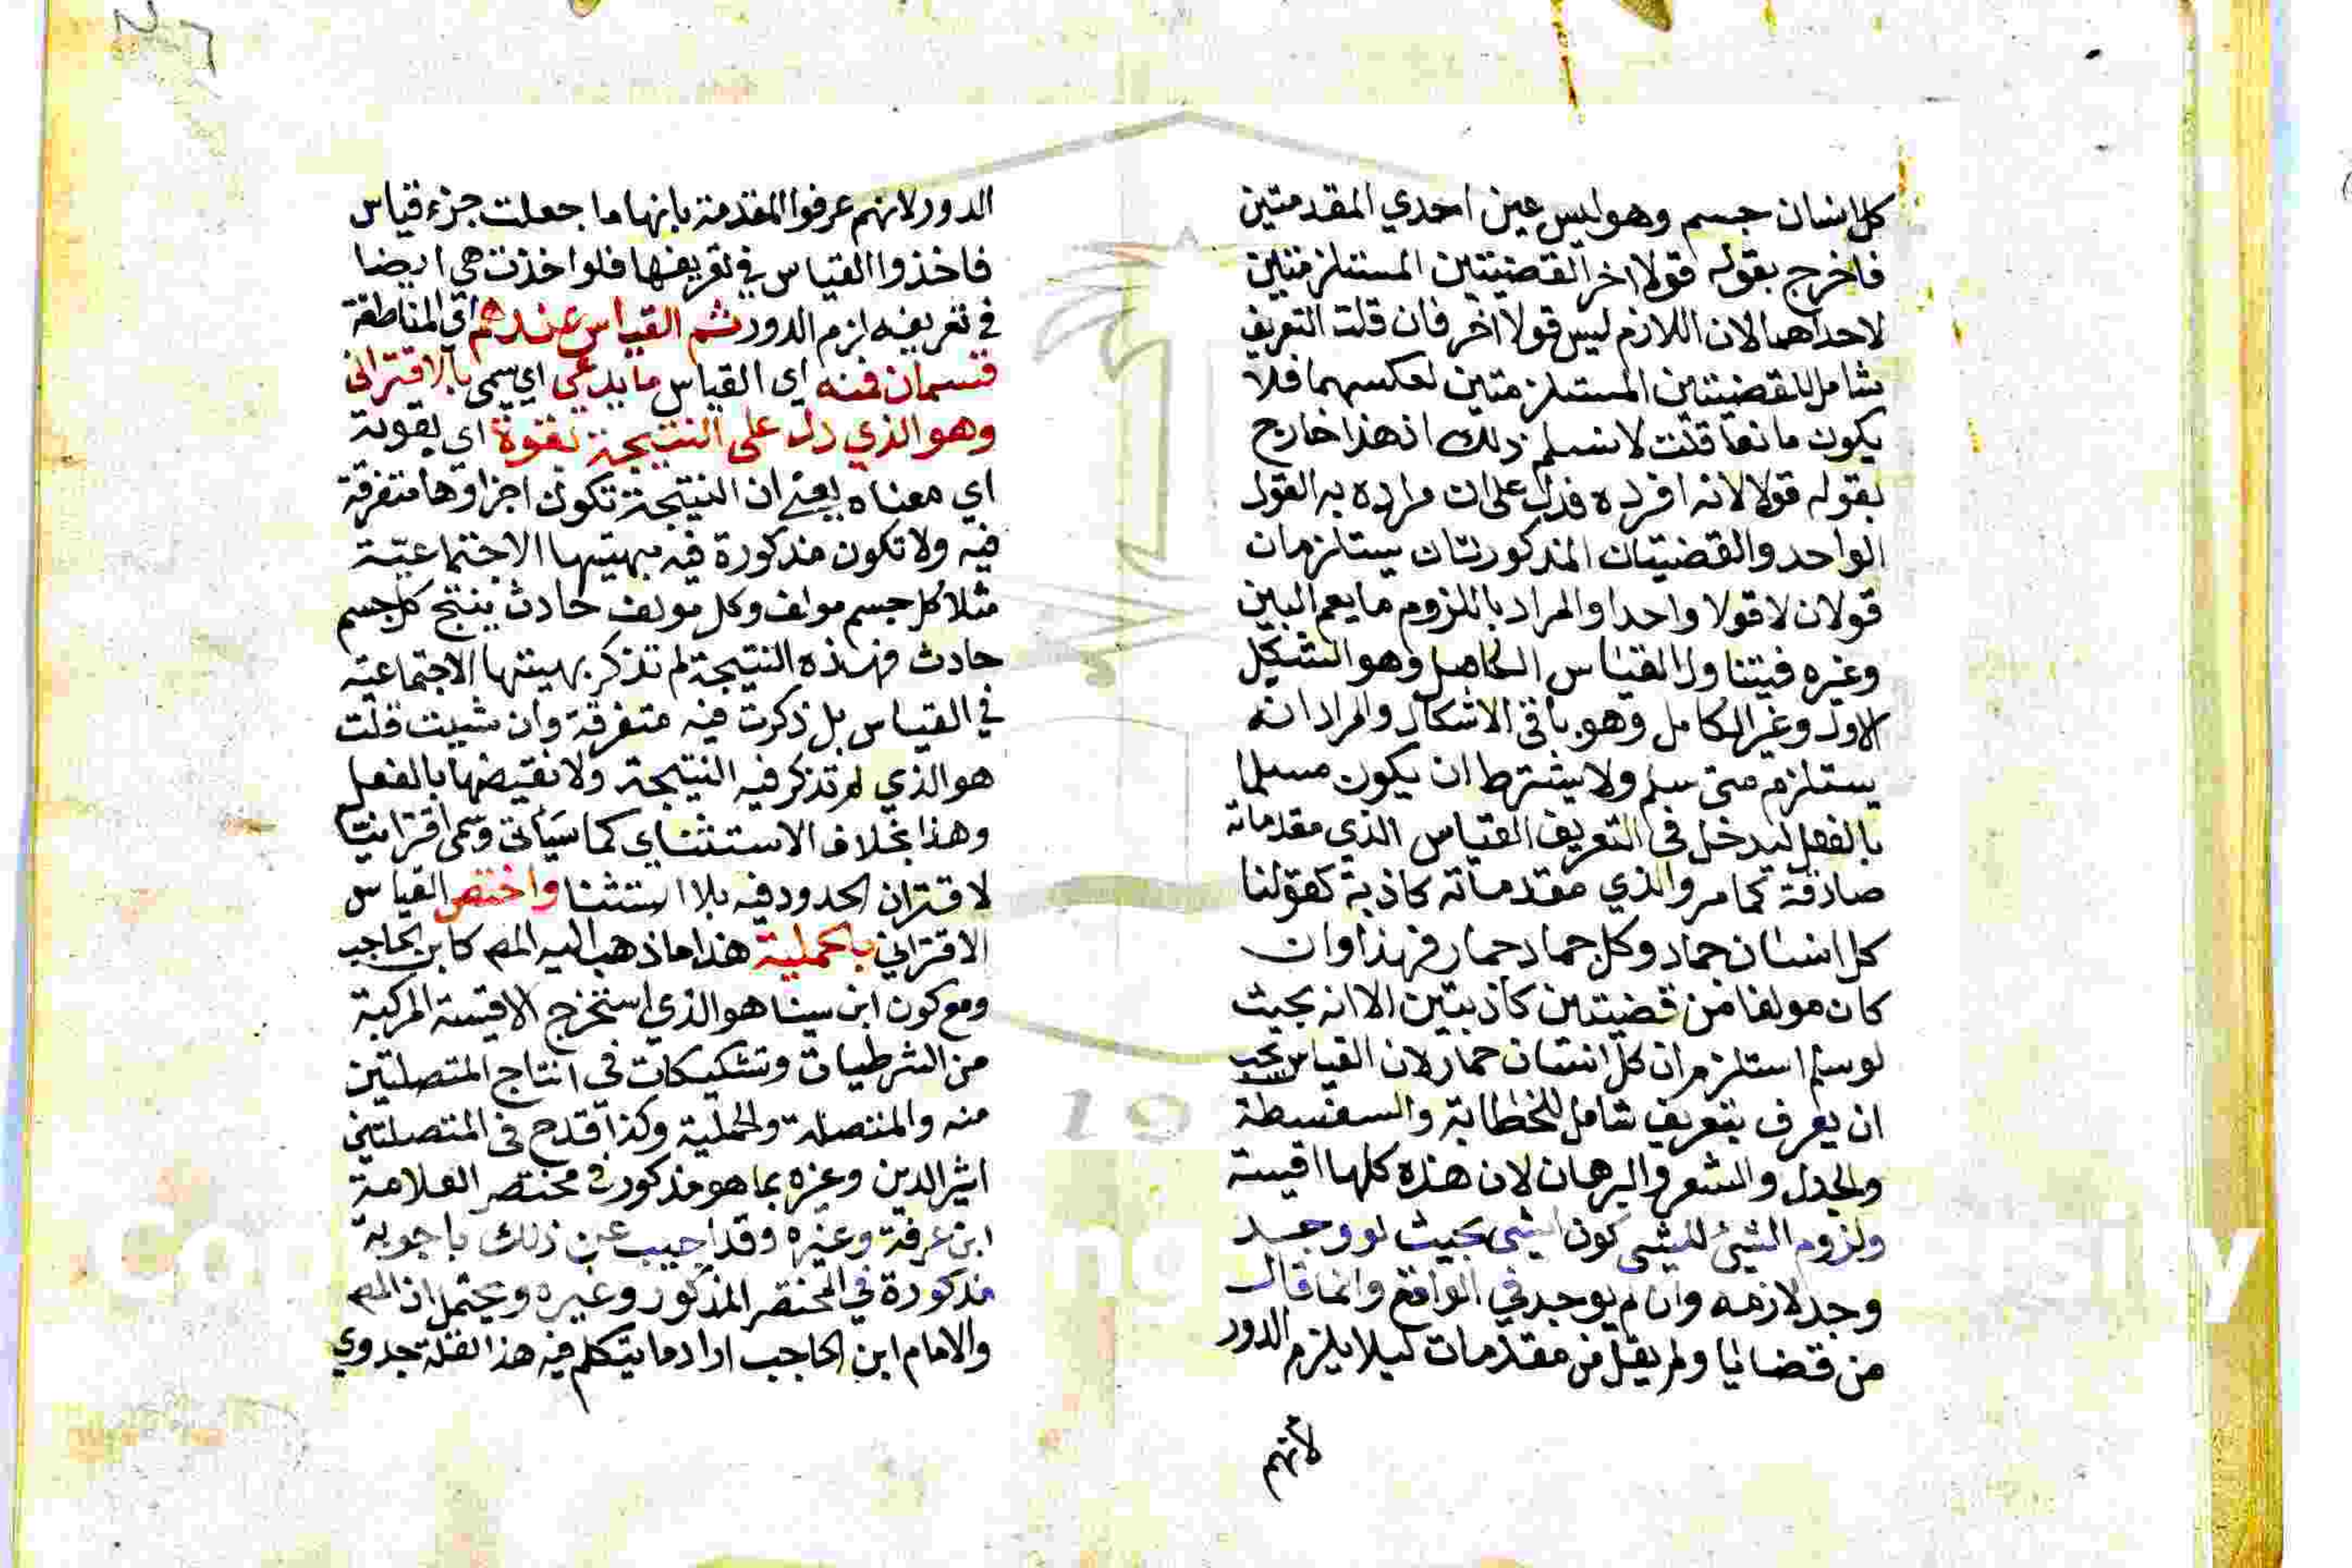 كل انسان جسم وهو ليس عين احدي المقدمتين
فاخرج بقوله قولا اخر القضيتين المستلزمتين
لاحداهما لان اللازم ليس قولا اخر فان قلت التعريف
شامل للقضيتين المستلزمتين لعكسهما فلا
يكون مانعا قلت لا نسلم ذلك اذ هذا خارج
بقوله قولا لانه افرده فدل على ان مراده به القول
الواحد والقضيتان المذكورتان يستلزمان
قولان لا قولا واحدا والمراد باللزوم ما يعم البين
وغيره فيتناول القياس الكامل وهو الشكل
الاول وغير الكامل وهو باقي الاشكال والمراد انه
يستلزم متى سلم ولا يشترط ان يكون مسلما
بالفعل ليدخل في التعريف القياس الذي مقدماته
صادقة كما مر والذي مقدماته كاذبة كقولنا
كل انسان جماد وكل جماد حمار فهذا وان
كان مولفا من قضيتين كاذبتين الا انه بحيث
لو سلم استلزم ان كل انسان حمار لان القياس يجب
ان يعرف بتعريف شامل للخطابة والسفسطة
والجدل والشعر والبرهان لان هذه كلها اقيسة
ولزوم الشئ للشي كون الشي بحيث لو وجد
وجد لازمه وان لم يوجد في الواقع وانما قال
من قضايا ولم يقل من مقدمات ليلا يلزم الدور
لانهم
الدور لانهم عرفوا المقدمة بانها ما جعلت جزء قياس
فاخذوا القياس في تعريفها فلو اخذت هي ايضا
في تعريفه لزم الدور ثم القياس عندهم اي المناطقة
قسمان فمنه اي القياس ما يدعى اي يسمى بالاقتراني
وهو الذي دل على النتيجة بقوة اي بقوته
اي معناه يعني ان النتيجة تكون اجزاوها متفرقة
فيه ولا تكون مذكورة فيه بهيتها الاجتماعية
مثلا كل جسم مولف وكل مولف حادث ينتج كل جسم
حادث فهذه النتيجة لم تذكر بهيتها الاجتماعية
في القياس بل ذكرت فيه متفرقة وان شيت قلت
هو الذي لم تذكر فيه النتيجة ولا نقيضها بالفعل
وهذا بخلاف الاستثناي كما سياتي وسمى اقترانيا
لاقتران الحدود فيه بلا استثنا واختص القياس
الاقتراني بالحملية هذا ما ذهب اليه المص كابن الحاجب
ومع كون ابن سينا هو الذي استخرج الاقيسة المركبة
من الشرطيات وتشكيكات في انتاج المتصلتين
منه والمتصلة والحملية وكذا قدح في المتصلتين
اثير الدين وغيره بما هو مذكور في مختصر العلامة
ابن عرفة وغيره وقد اجيب عن ذلك باجوبة
مذكورة في المختصر المذكور وغيره ويحتمل ان المص
والامام ابن الحاجب ارادما يتكلم فيه هذا لقلة جدوي